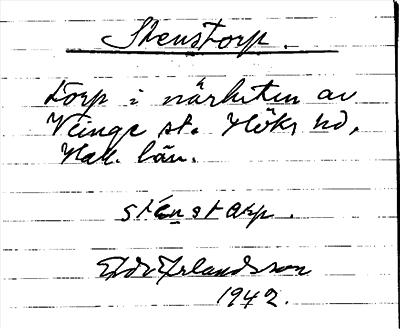 Stenstorp.
Torp i närheten av
Veinge st. Höks hd,
Hall. län.
sténstorp.
Erlandsson
1942.